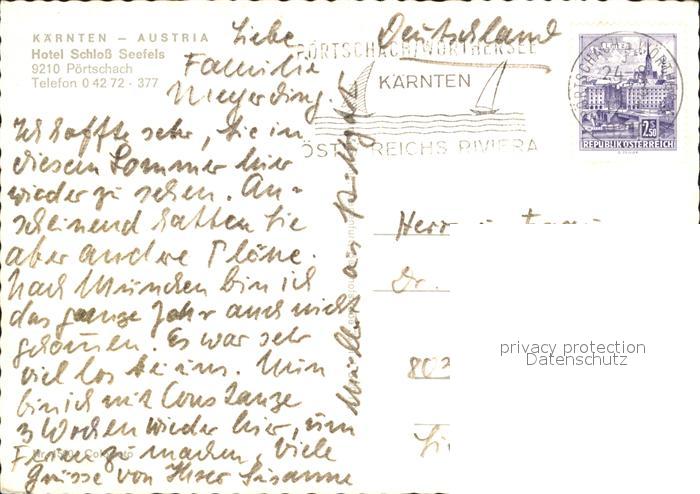 KÄRNTEN – AUSTRIA
Hotel Schloß Seefels
9210 Pörtschach
Telefon 0 42 72 - 377
Liebe
Familie
Meyerding!
Ich hoffte sehr, Sie in
diesem Sommer hier
wieder zu sehen. An-
scheinend hatten Sie
aber andere Pläne.
Nach München bin ich
das ganze Jahr auch nicht
gekommen. Es war sehr
viel los bei uns. Nun
bin ich mit Constanze
3 Wochen wieder hier, um
Ferien zu machen. Viele
Grüsse von Ihrer Susanne
Müller aus
Deutschland
PÖRTSCHACH/WÖRTHERSEE
KÄRNTEN
ÖSTERREICHS RIVIERA
24
2.50
REPUBLIK ÖSTERREICH
Herr
Dr.
privacy protection
Datenschutz